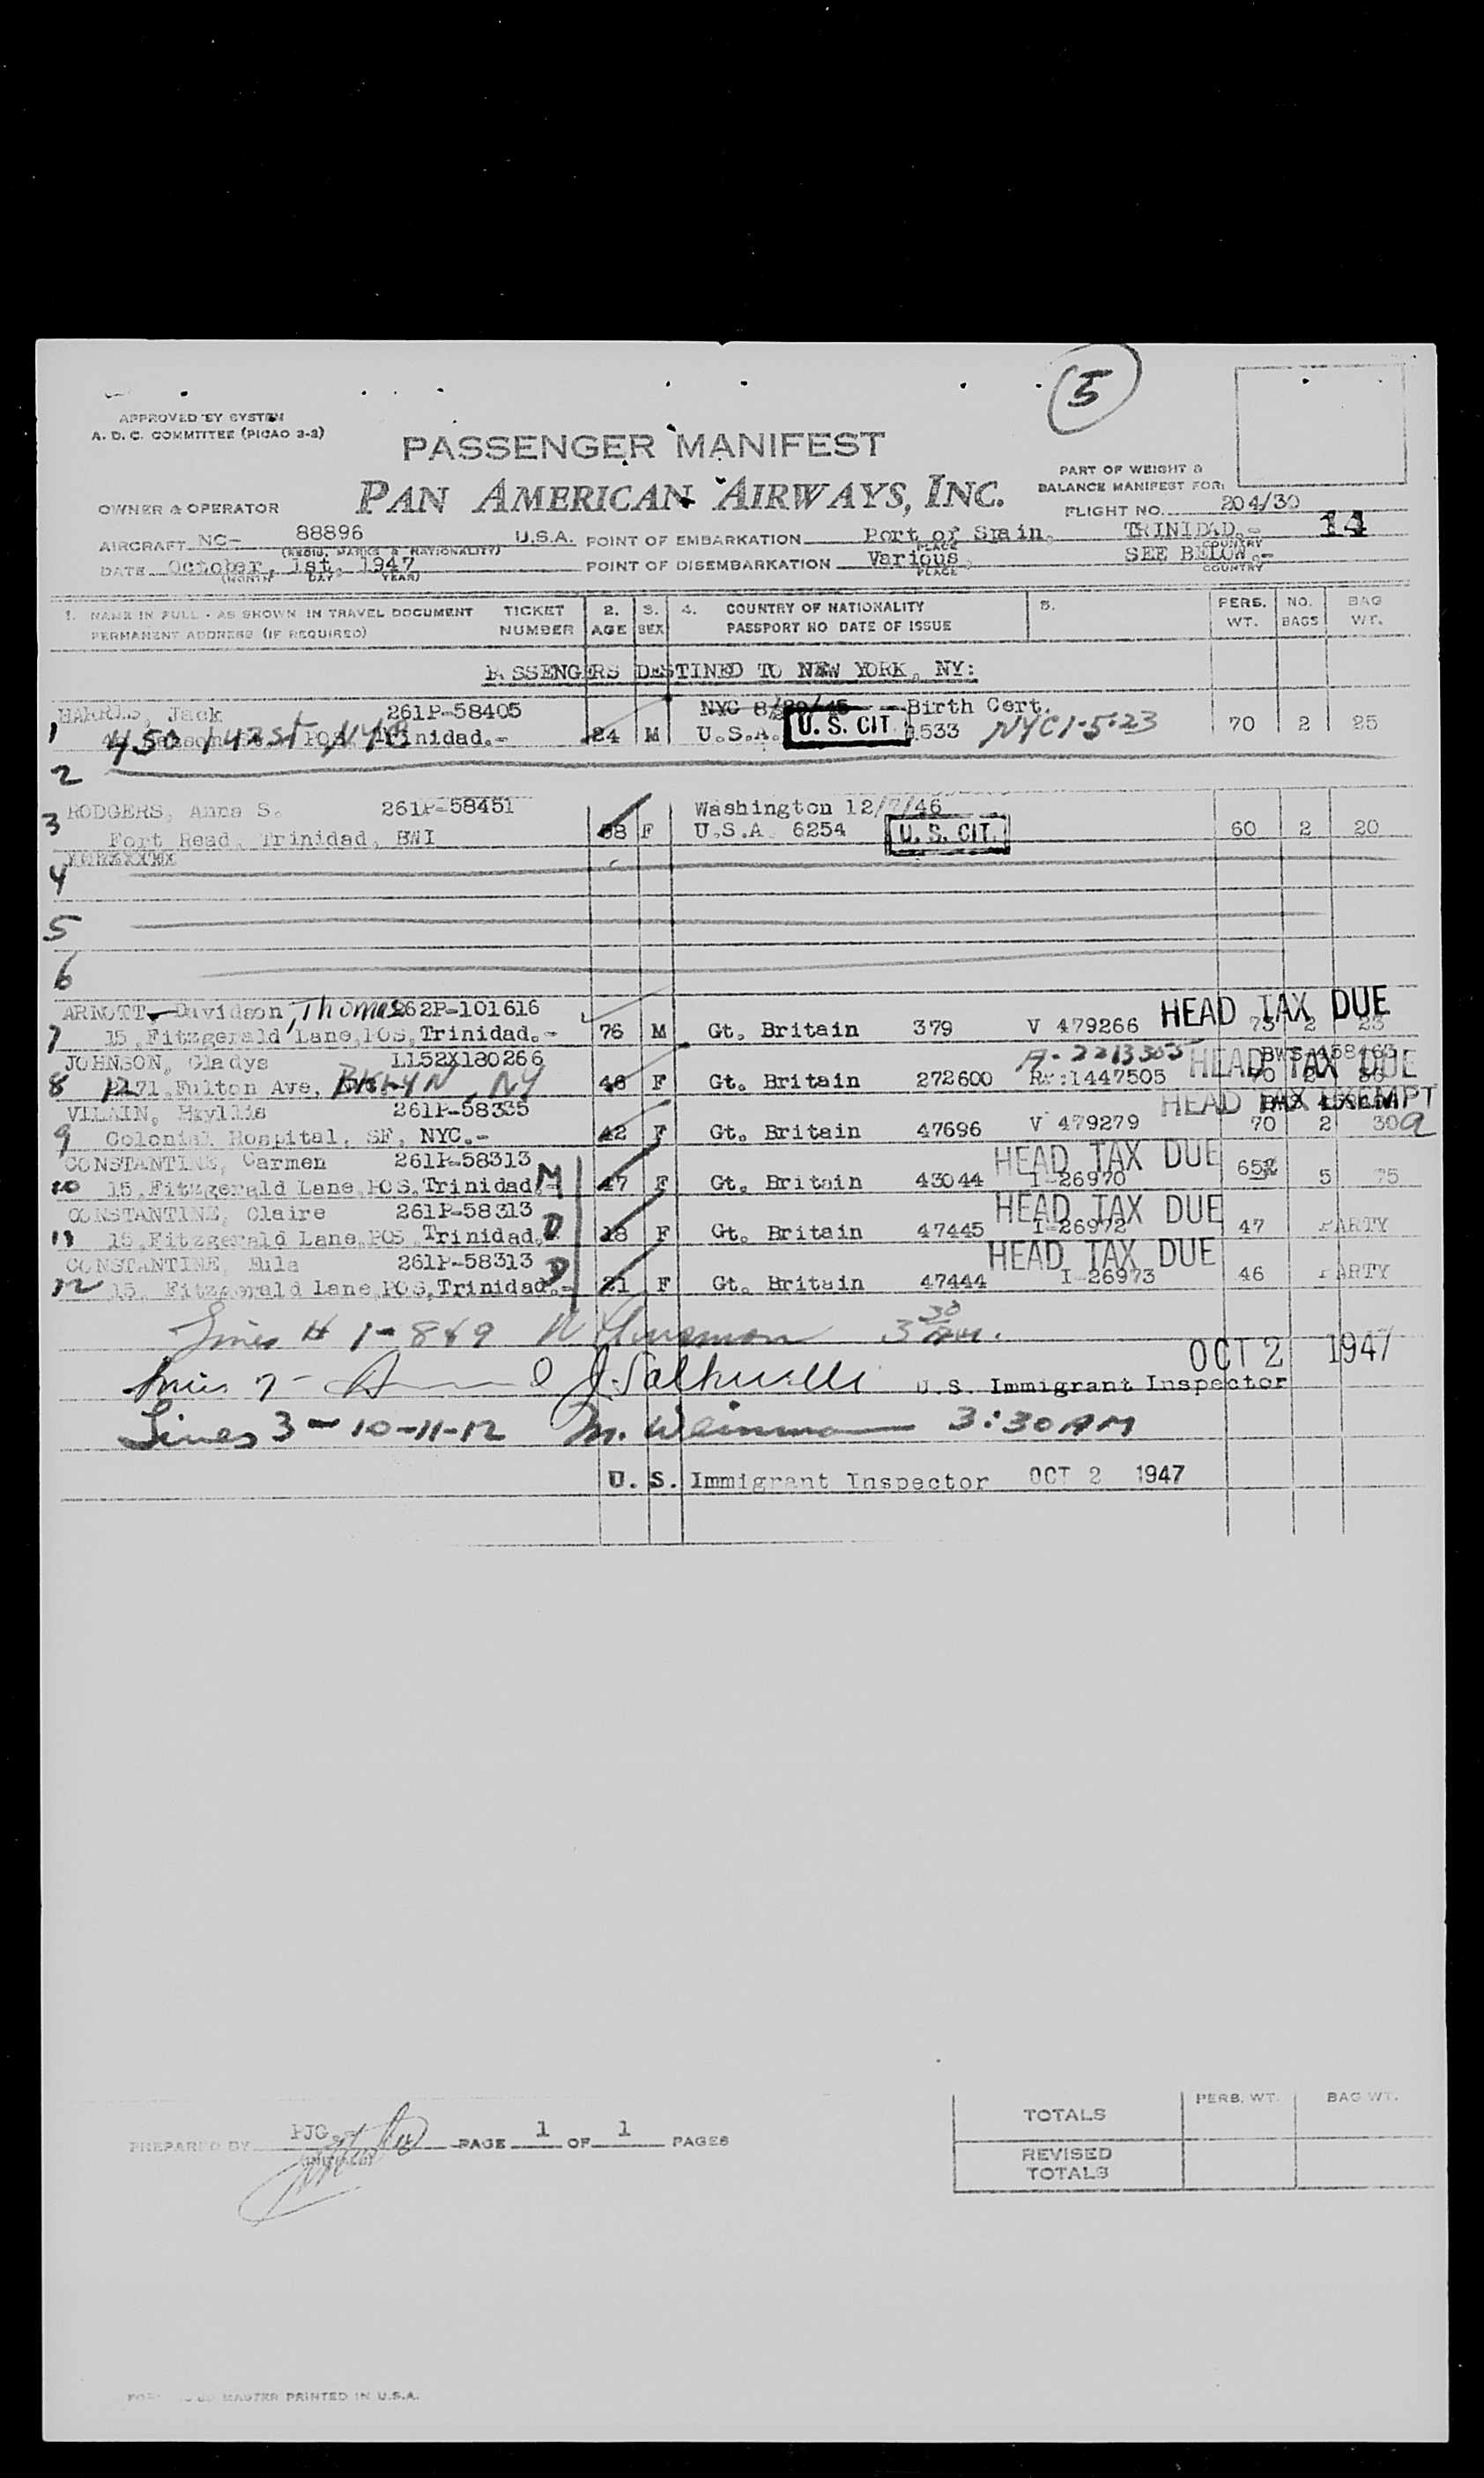 5
APPROVED BY SYSTEM
A. D. C. COMMITTEE (PICAO 3-3)
PASSENGER MANIFEST
PAN AMERICAN AIRWAYS, INC.
PART OF WEIGHT &
BALANCE MANIFEST FOR:
OWNER & OPERATOR
FLIGHT NO. 204/30
14
AIRCRAFT NC- 88896 U.S.A. POINT OF EMBARKATION Port of Spain, TRINIDAD.-
(REGIS. MARKS & NATIONALITY) PLACE COUNTRY
DATE October, 1st, 1947 POINT OF DISEMBARKATION Various, SEE BELOW.-
(MONTH DAY YEAR) PLACE COUNTRY
1. NAME IN FULL - AS SHOWN IN TRAVEL DOCUMENT TICKET 2. 3. 4. COUNTRY OF NATIONALITY 5. PERS. NO. BAG
PERMANENT ADDRESS (IF REQUIRED) NUMBER AGE SEX PASSPORT NO DATE OF ISSUE WT. BAGS WT.
PASSENGERS DESTINED TO NEW YORK, NY:
HARRIS, Jack 261P-58405 NYC Birth Cert.
1 450 142st NYC Trinidad.- 24 M U.S.A. U. S. CIT. 533 NYC 1-5-23 70 2 25
2
RODGERS, Anna S. 261P-58451 Washington 12/7/46
3 Fort Read, Trinidad, BWI F U.S.A. 6254 U. S. CIT. 60 2 20
4
5
6
ARNOTT Davidson, Thomas 262P-101616 HEAD TAX DUE
7 15, Fitzgerald Lane, POS, Trinidad.- 76 M Gt. Britain 379 V 479266 75 2 23
JOHNSON, Gladys 1152X180266 A-2213305 HEAD TAX DUE
8 1271, Fulton Ave, BKLYN, NY 46 F Gt. Britain 272600 1447505 70 2
VILAIN, 261P-58335 HEAD TAX EXEMPT
9 Colonial Hospital, SF, NYC.- 42 F Gt. Britain 47696 V 479279 70 2 30
CONSTANTINE, Carmen 261P-58313 HEAD TAX DUE
10 15, Fitzgerald Lane, POS, Trinidad.- M 47 F Gt. Britain 43044 I-26970 65 5 75
CONSTANTINE, Claire 261P-58313 HEAD TAX DUE
11 15, Fitzgerald Lane, POS, Trinidad.- D 18 F Gt. Britain 47445 I-26972 47 PARTY
CONSTANTINE, Eula 261P-58313 HEAD TAX DUE
12 15, Fitzgerald Lane, POS, Trinidad.- D 21 F Gt. Britain 47444 I-26973 46 PARTY
Lines # 1-8&9 3 30
OCT 2 1947
7- U.S. Immigrant Inspector
Lines 3-10-11-12 M. 3:30 AM
U. S. Immigrant Inspector OCT 2 1947
TOTALS PERS. WT. BAG WT.
REVISED
TOTALS
PREPARED BY PJG PAGE 1 OF 1 PAGES
MASTER PRINTED IN U.S.A.